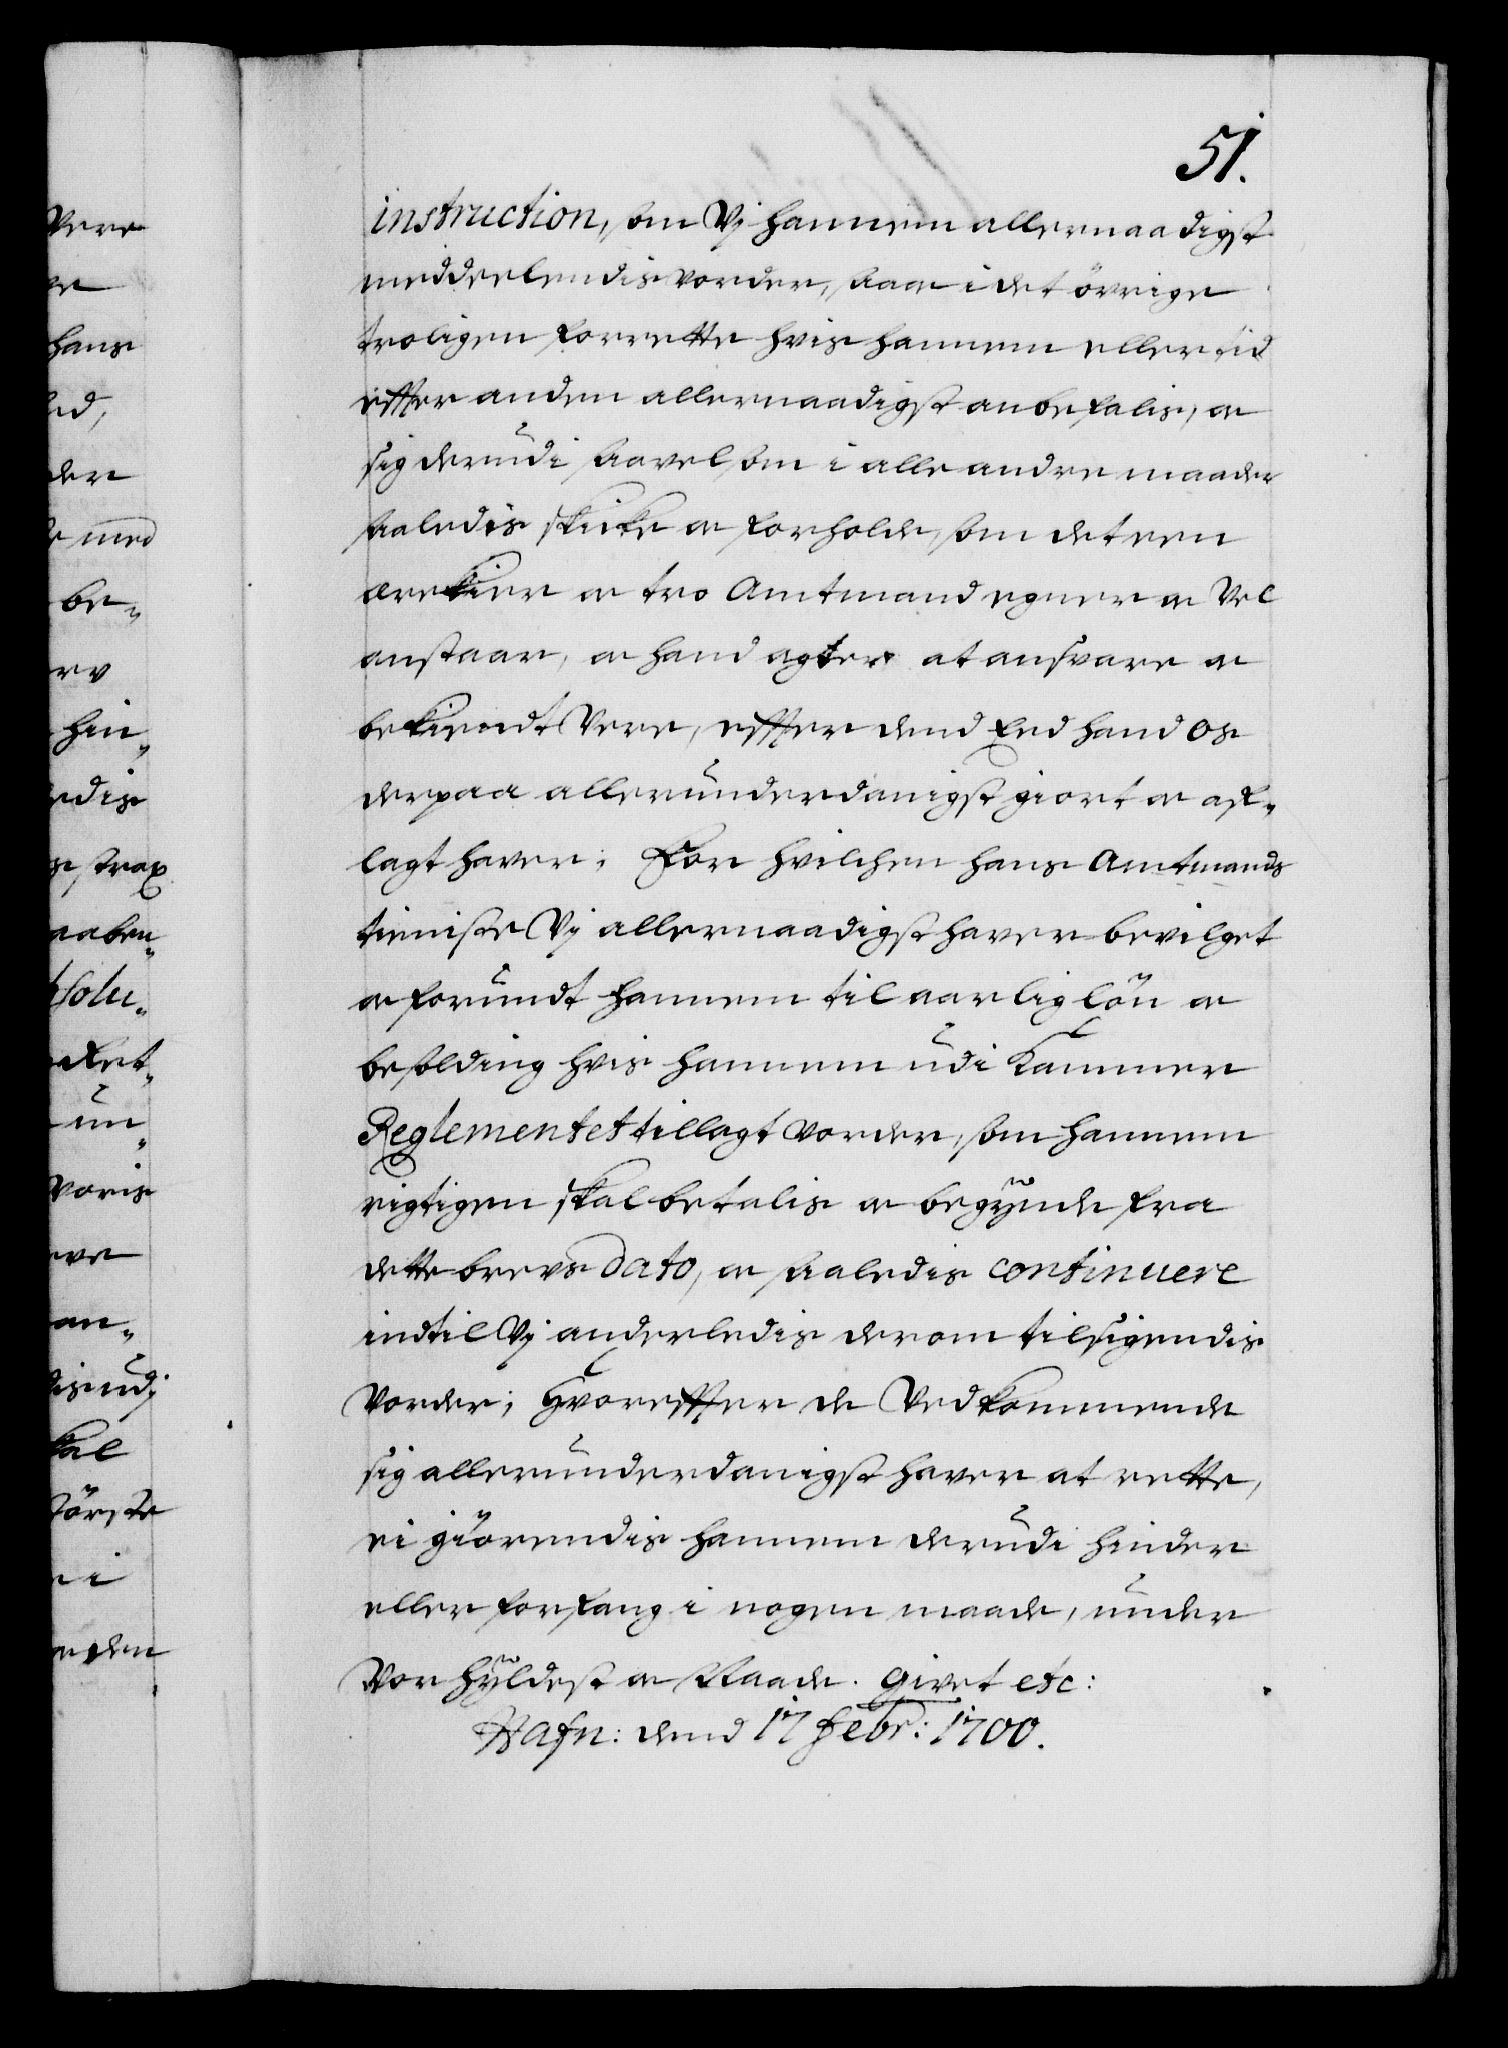 51.
instruction, som Vj hannem allernaadigst
meddeelendis vorder, saa i det övrige
troligen forrette hvis hannem eller tid
efter anden allernaadigst anbefalis, oc
sig derudi saavel som i alle andre maader
saaledis skicke oc forholde, som det een
ærekier oc tro Amtmand egner oc Vel
anstaar, oc hand agter at ansvare oc
bekiendt Vere, efter dend Eed hand Os
derpaa allerunderdanigst giort oc af„
lagt haver; For hvilchen hans Amtmands
tieniste Vj allernaadigst haver bevilget
oc forundt hannem til aarlig lön oc
besolding hvis hannem udi Kammer
Reglementet tillagt vorder, som hannem
rigtigen skal betalis oc begynde fra
dette brevs dato, oc saaledis continuere
indtil Vj anderledis derom tilsigendis
vorder; Hvorefter de Vedkommende
sig allerunderdanigst haver at rette,
ei giörendis hannem derudi hinder
eller forfang i nogen maade, under
Vor hyldest oc Naade. Givet etc:
Hafn: dend 17 Febr: 1700.
Vere
hans
der
med
be„
hin„
strax
aaben„
solu„
un„
voris
an„
udj
förste
i